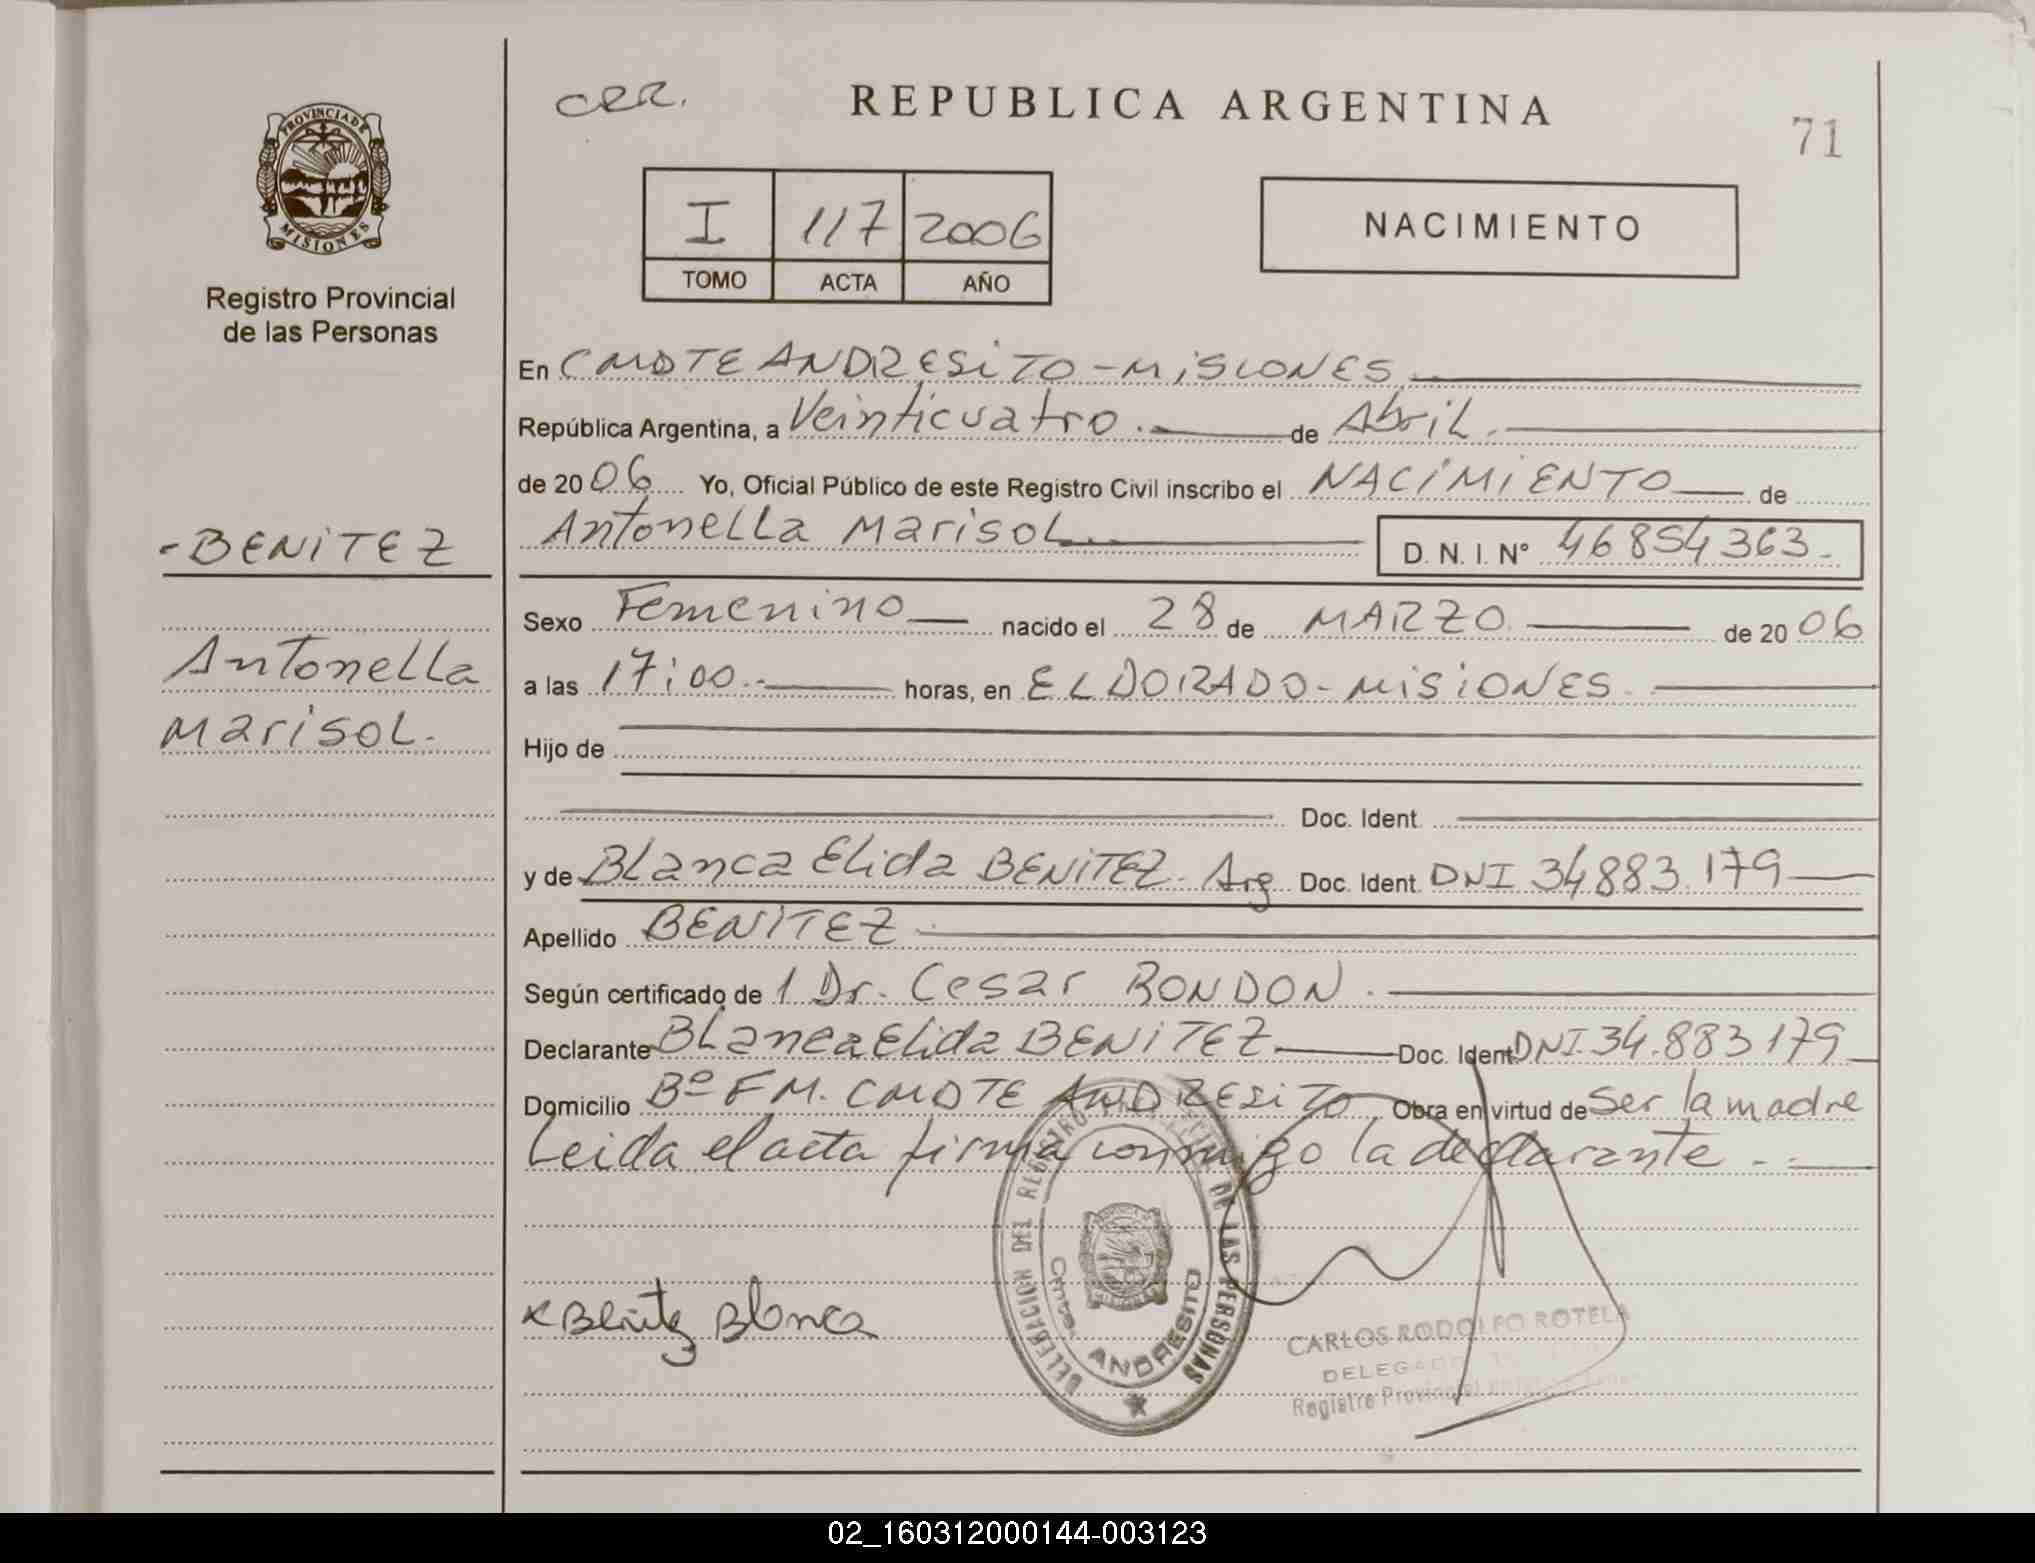 cer.
REPUBLICA ARGENTINA
71
PROVINCIA DE
MISIONES
Registro Provincial
de las Personas
I 117 2006
TOMO ACTA AÑO
NACIMIENTO
En CMDTE ANDRESITO - MISIONES
República Argentina, a Veinticuatro. de Abril.
de 20 06 Yo, Oficial Público de este Registro Civil inscribo el NACIMIENTO de
Antonella Marisol D. N. I. N° 46854363.
- BENITEZ
Antonella
Marisol.
Sexo Femenino nacido el 28 de MARZO de 20 06
a las 17:00 horas, en ELDORADO - MISIONES.
Hijo de
Doc. Ident.
y de Blanca Elida BENITEZ. Arg Doc. Ident. DNI 34883.179
Apellido BENITEZ
Según certificado de 1 Dr. Cesar RONDON.
Declarante Blanca Elida BENITEZ Doc. Ident. DNI. 34.883179
Domicilio Bº F M. CMDTE ANDRESITO Obra en virtud de Ser la madre
Leida el acta firma conmigo la declarante.
x Benitez Blanca
DELEGACION DEL REGISTRO DE LAS PERSONAS
Cmte. ANDRESITO
CARLOS RODOLFO ROTELA
DELEGADO
Registro Provincial
02_160312000144-003123